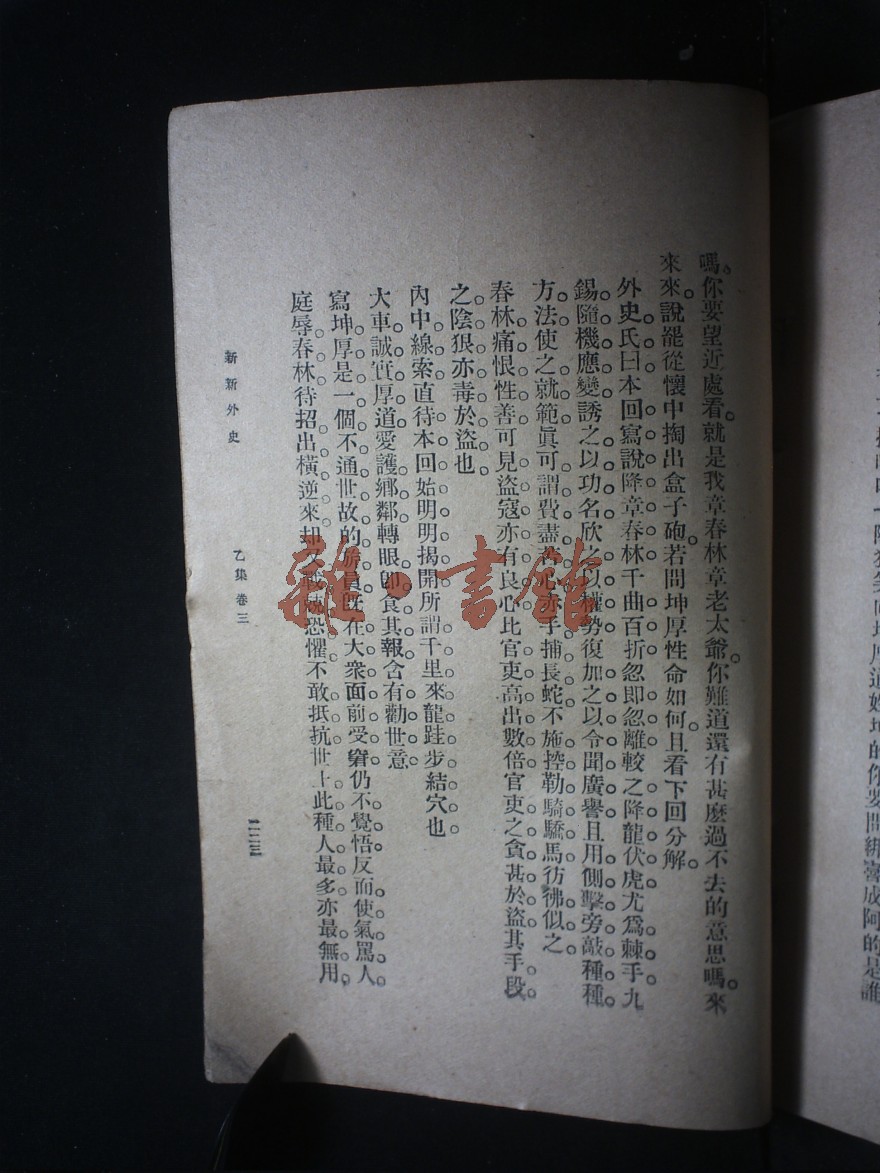 嗎。你要望近處看。就是我章春林章老太爺。你難道還有甚麼過不去的意思嗎。來
來來說罷從懷中掏出盒子砲。若問坤厚性命如何。且看下回分解。
外史氏曰本回寫說降章春林千曲百折忽即忽離較之降龍伏虎尤爲棘手九
錫隨機應變誘之以功名欣之以權勢復加之以令聞廣譽且用側擊旁敲種種
方法使之就範眞可謂費盡 手捕長蛇不施控勒騎驕馬彷彿似之
春林痛恨性善可見盜寇亦有良心比官吏高出數倍官吏之貪甚於盜其手段
之陰狠亦毒於盜也
內中線索直待本回始明明揭開所謂千里來龍跬步結穴也
大車誠實厚道愛護鄉鄰轉眼即食其報含有勸世意
寫坤厚是一個不通世故的 在大衆面前受窘仍不覺悟反而使氣罵人
庭辱春林待招出橫逆來却又 恐懼不敢抵抗世上此種人最多亦最無用
新新外史
乙集卷三
雜·書館